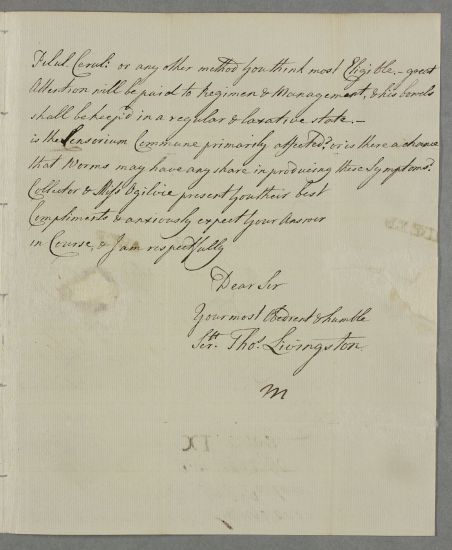 Pilul. Cerul: or any other method you think most Eligible, – great
Attention will be paid to Regimen & Management, & his bowels
shall be keep'd in a regular & laxative state. –
is the Sensorium Commune primarily affected? or is there a chance
that Worms may have any share in producing these Symptoms?
Collector & Miss Ogilvie present you their best
Compliments & anxiously expect your Answer
in Course, & I am respectfully
Dear Sir
Your most Obedient & humble
Sert. Thos. Livingston